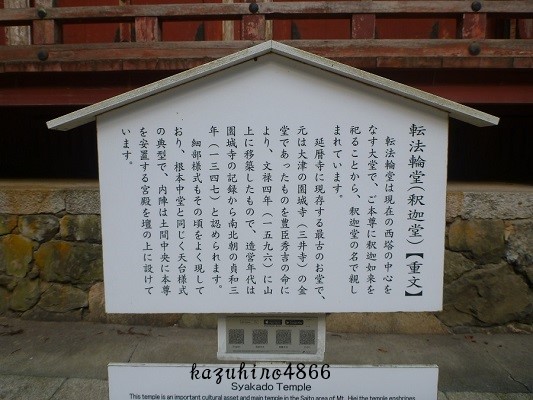 転法輪堂(釈迦堂)【重文】
転法輪堂は現在の西塔の中心を
なす大堂で、ご本尊に釈迦如来を
祀ることから、釈迦堂の名で親し
まれています。
延暦寺に現存する最古のお堂で、
元は大津の園城寺(三井寺)の金
堂であったものを豊臣秀吉の命に
より、文禄四年(一五九六)に山
上に移築したもので、造営年代は
園城寺の記録から南北朝の貞和三
年(一三四七)と認められます。
細部様式もその頃をよく現して
おり、根本中堂と同じく天台様式
の典型で、内陣は土間中央に本尊
を安置する宮殿を壇の上に設けて
います。
kazuhiro4866
Syakado Temple
This temple is an important cultural asset and main temple in the Saito area of Mt. Hiei the temple enshrines